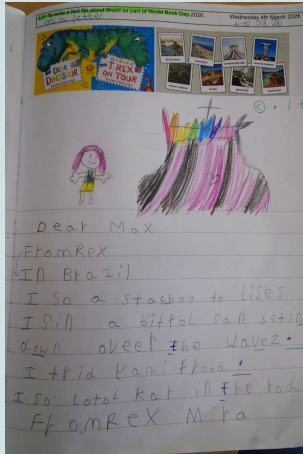 LO: To write a fact file about Brazil as part of World Book Day 2026.
Wednesday 4th March 2026
letter
DEAR DINOSAUR
T. REX ON TOUR
Dear Max
FromRex
In Brazil
I so a stachoo to lises
I Sin a bittol san setin
down oveer the wavez.
I trid yami frood.
I so lotot kar in the rod
FromReX Mira